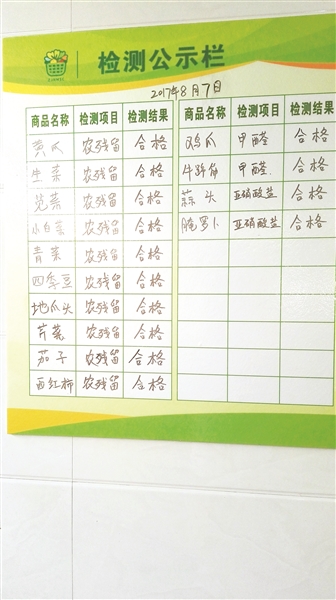 检测公示栏
2017年8月7日
商品名称 检测项目 检测结果 商品名称 检测项目 检测结果
黄瓜 农残留 合格 鸡爪 甲醛 合格
生菜 农残留 合格 牛胖角 甲醛 合格
苋菜 农残留 合格 蒜头 亚硝酸盐 合格
小白菜 农残留 合格 腌萝卜 亚硝酸盐 合格
青菜 农残留 合格
四季豆 农残留 合格
地瓜头 农残留 合格
芹菜 农残留 合格
茄子 农残留 合格
西红柿 农残留 合格